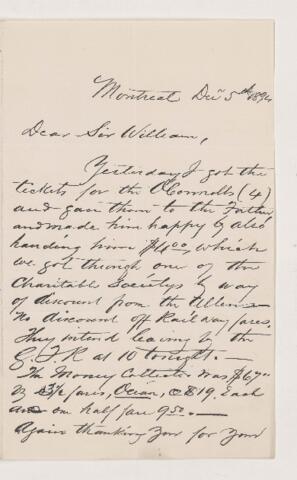 Montreal Decr 5th 1894
Dear Sir William,
Yesterday I got the
tickets for the O'Connells (4)
and gave them to the Father
and made him happy by also
handing him $4.00, which
we got through one of the
Charitable Societys by way
of discount from the Allen
No discount off Railway fares.
They intend leaving by the
G.T.R at 10 tonight. —
The Money Collected was $67.00
3 1/2 fares, Ocean, @ $19, each
and one half fare 9.50. —
Again thanking You for Your